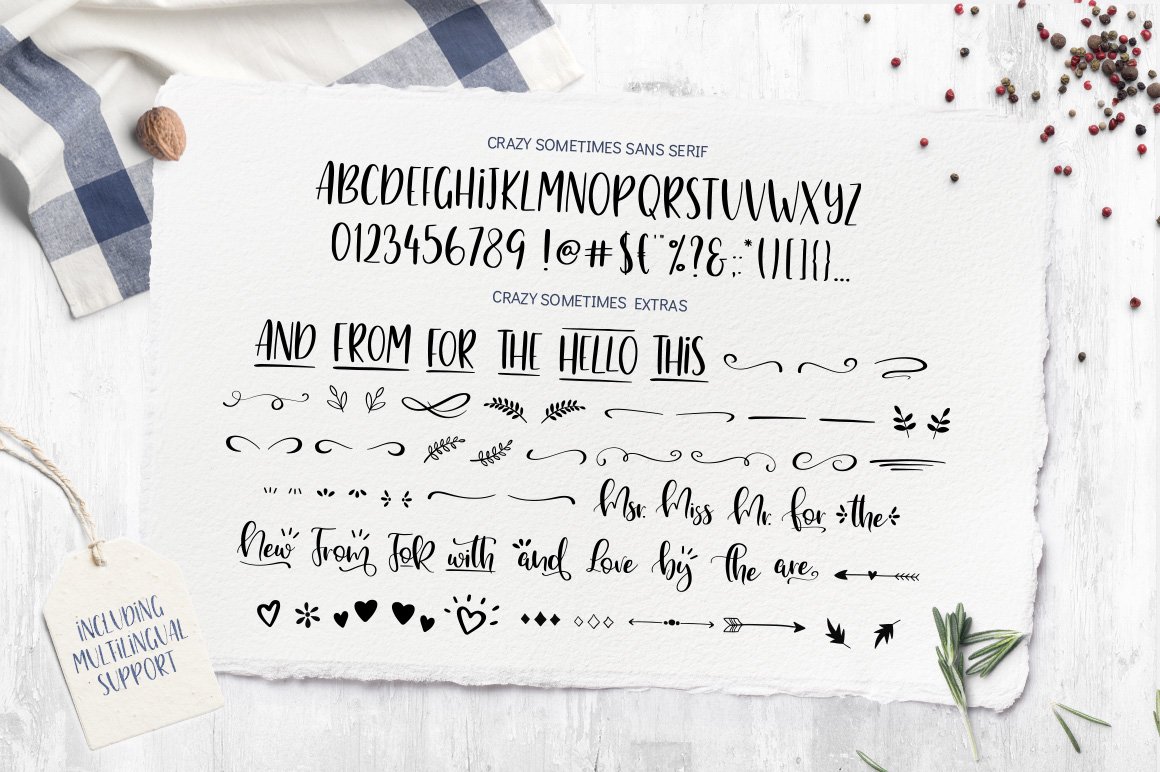 CRAZY SOMETIMES SANS SERIF
ABCDEFGHiJKLMNOPQRSTUVWXYZ
0123456789 !@#$€'"%?&;:*()[]{}...
CRAZY SOMETIMES EXTRAS
AND FROM FOR THE HELLO THiS
Msr. Miss Mr. for the
New From FoR with and Love by the are
iNCLUDiNG
MULTiLiNGUAL
SUPPORT